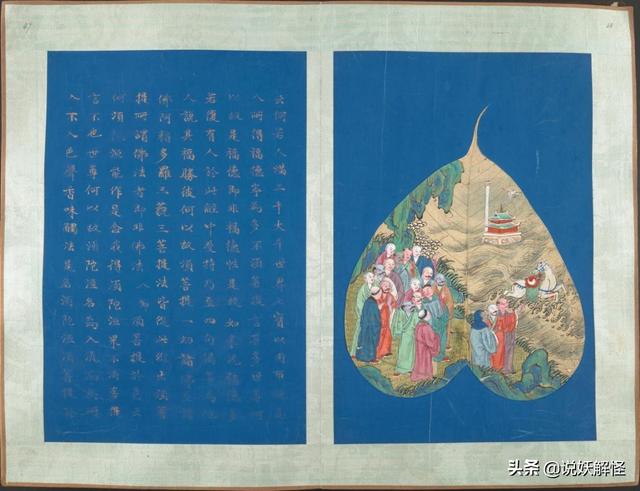 云何若人滿三千大千世界七寶以用布施是
人所得福德寧為多不須菩提言甚多世尊何
以故是福德即非福德性是故如來說福德多
若復有人於此經中受持乃至四句偈等為他
人說其福勝彼何以故須菩提一切諸佛及諸
佛阿耨多羅三藐三菩提法皆從此經出須菩
提所謂佛法者即非佛法 須菩提於意云
何須陀洹能作是念我得須陀洹果不須菩提
言不也世尊何以故須陀洹名為入流而無所
入不入色聲香味觸法是名須陀洹須菩提於
头条 @说妖解怪